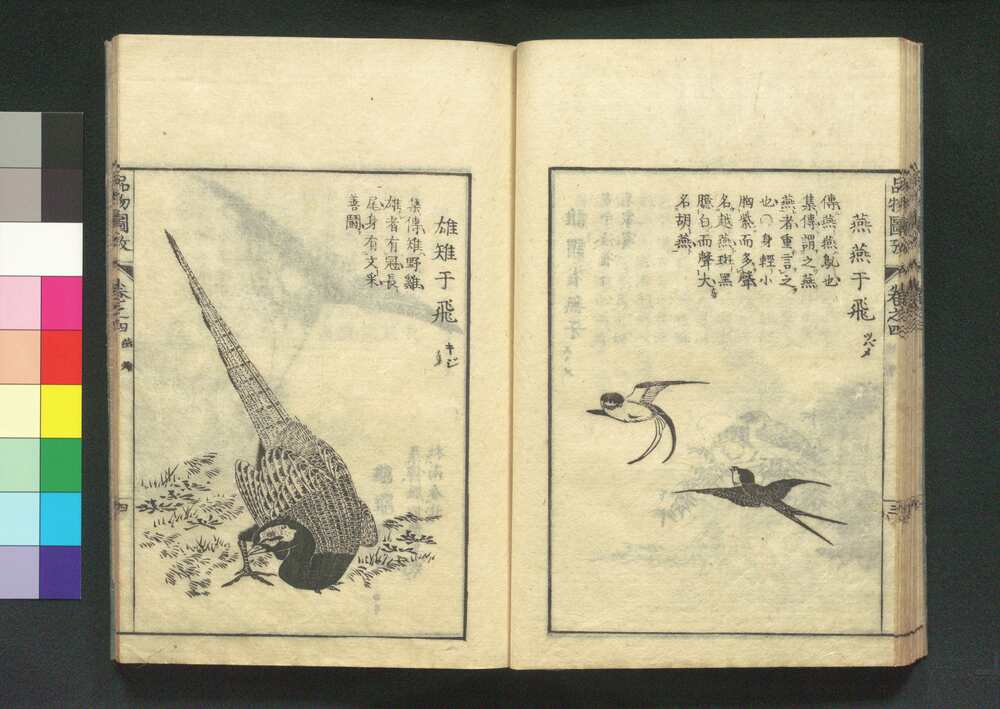 燕燕于飛
ツバメ
傳燕燕鳦也
集傳謂之燕
燕者重言之
也○身輕小
胸紫而多聲
名越燕斑黑
臆白而聲大
名胡燕
品物圖攷
卷之四
三
雄雉于飛
キジ
集傳雉野雞
雄者有冠長
尾身有文采
善鬪
品物圖攷
卷之四
四